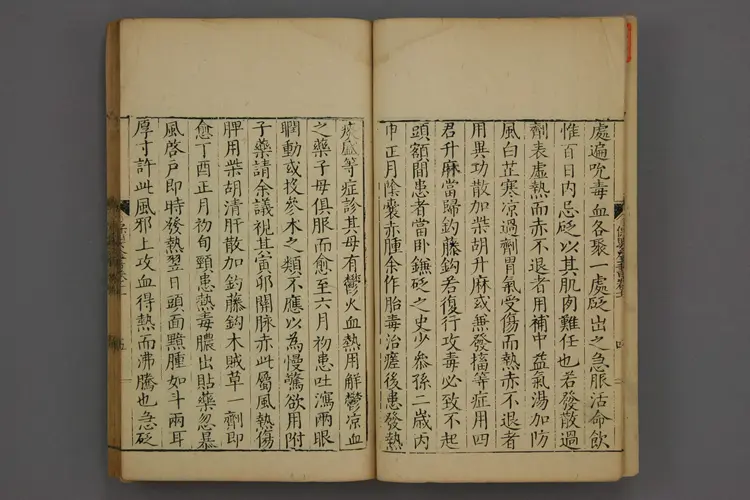 處遍吮毒血各聚一處砭出之急服活命飲
惟百日内忌砭以其肌肉難任也若發散過
劑表虛熱而赤不退者用補中益氣湯加防
風白芷寒凉過劑胃氣受傷而熱赤不退者
用異功散加柴胡升麻或無發搐等症用四
君升麻當歸鈎藤鈎若復行攻毒必致不起
頭額間患者當卧鐮砭之史少叅孫二歲丙
申正月陰囊赤腫余作胎毒治瘥後患發熱
痰盛等症診其母有鬱火血熱用解鬱凉血
之藥子母俱服而愈至六月初患吐瀉兩眼
瞤動或投參术之類不應以為慢驚欲用附
子藥請余議視其寅卯關脉赤此屬風熱傷
脾用柴胡清肝散加鈎藤鈎木賊草一劑即
愈丁酉正月初旬頸患熱毒膿出貼藥忽暴
風啓戶即時發熱翌日頭面黯腫如斗兩耳
厚寸許此風邪上攻血得熱而沸騰也急砭